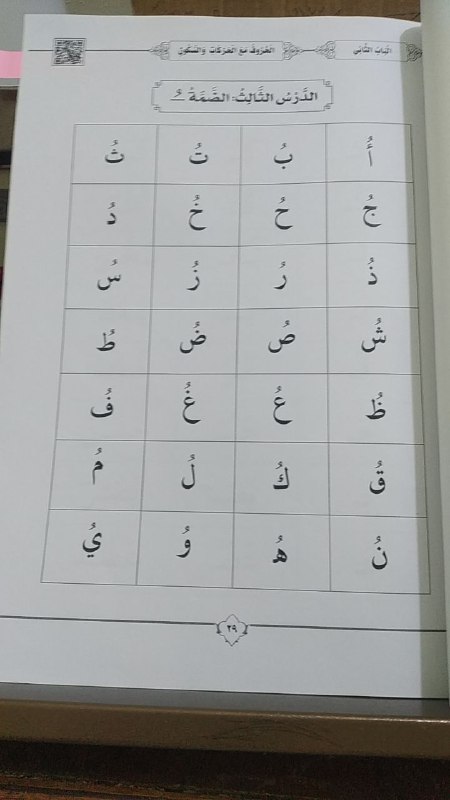 الباب الثاني الحروف مع الحركات والسكون
الدَّرْسُ الثَّالِثُ: الضَّمَةُ ـُ
أُ بُ تُ ثُ
جُ حُ خُ دُ
ذُ رُ زُ سُ
شُ صُ ضُ طُ
ظُ عُ غُ فُ
قُ كُ لُ مُ
نُ هُ وُ يُ
٢٩